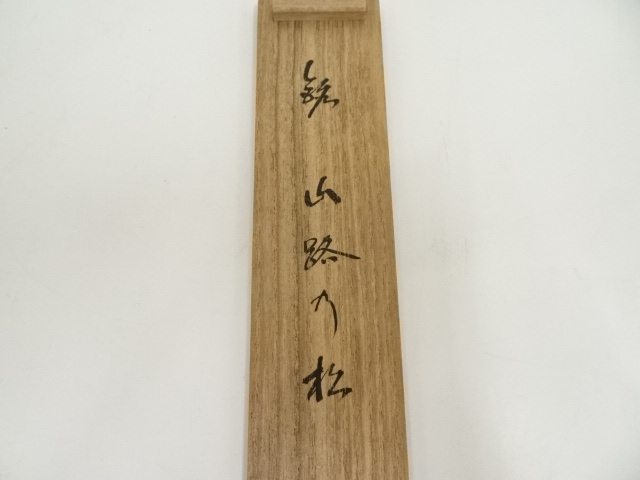 銘 山路乃松